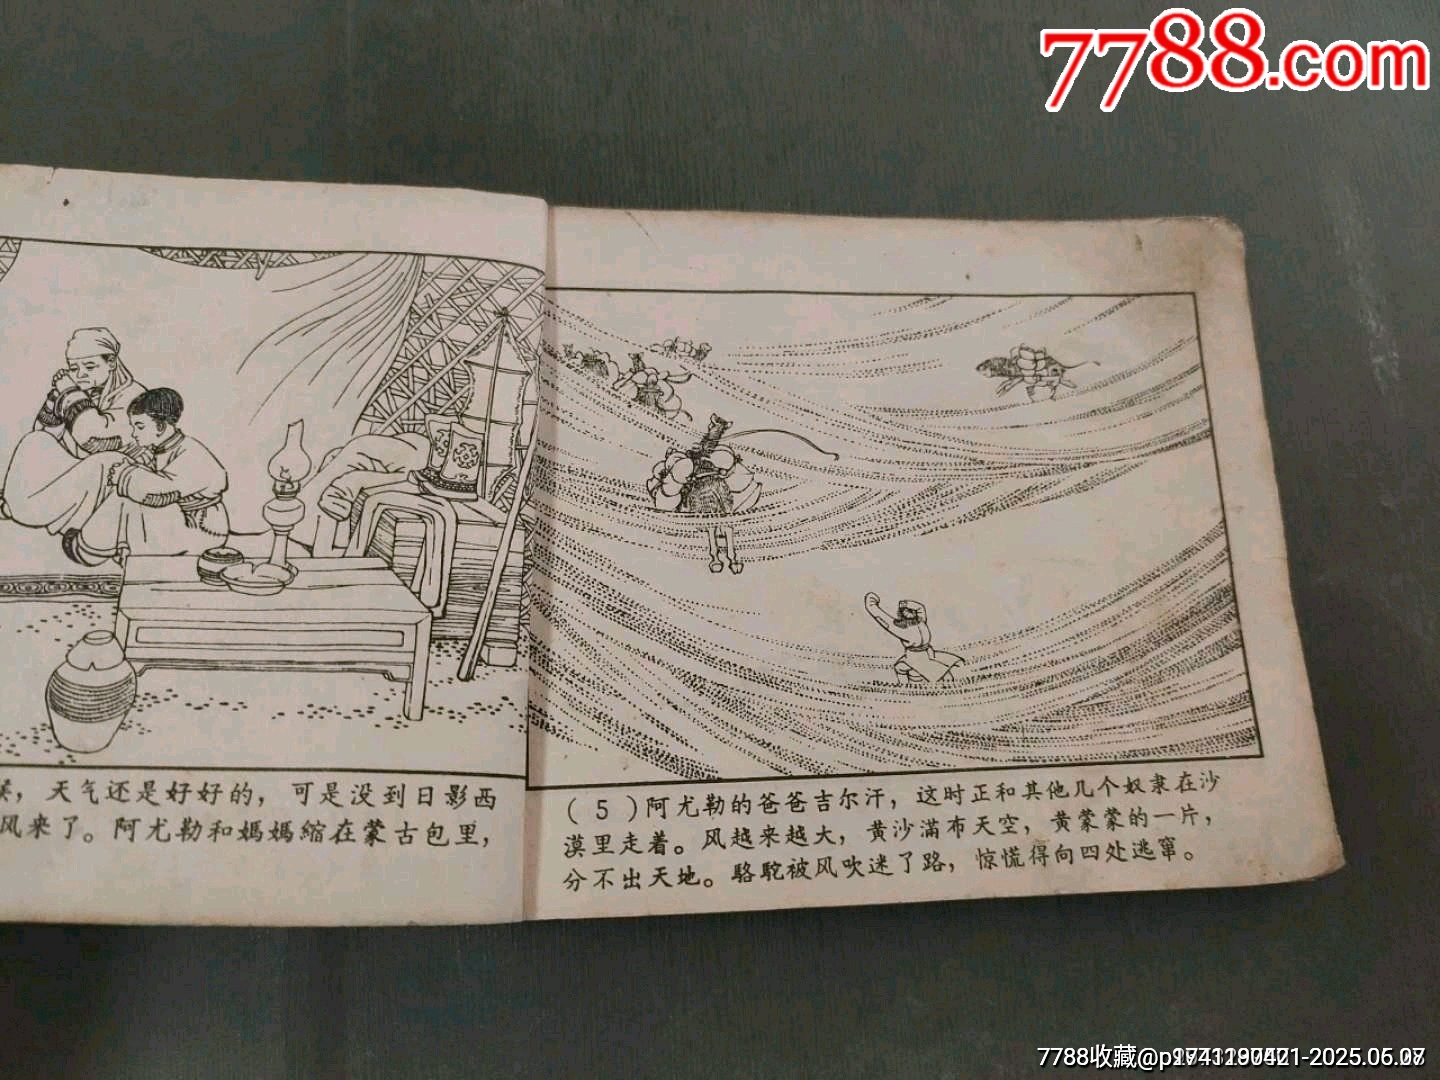 7788.com
，天气还是好好的，可是没到日影西
风来了。阿尤勒和媽媽縮在蒙古包里，
（5）阿尤勒的爸爸吉尔汗，这时正和其他几个奴隶在沙
漠里走着。风越来越大，黄沙满布天空，黄蒙蒙的一片，
分不出天地。骆驼被风吹迷了路，惊慌得向四处逃窜。
7788收藏@p1741190421-2025.05.07